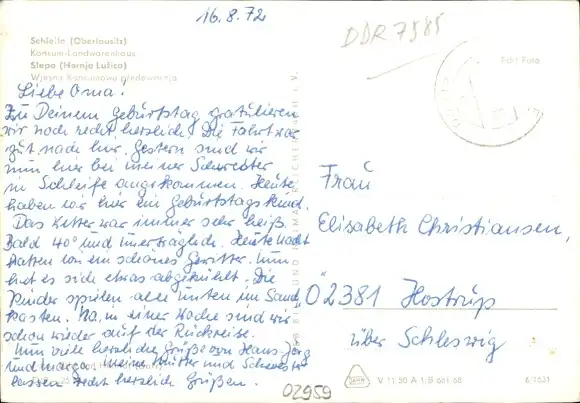 16.8.72
DDR 7585
Schleife (Oberlausitz)
Konsum-Landwarenhaus
Slepo (Hornja Łužica)
Wjesna Konsumowa předawarnja
Echt Foto
Liebe Oma!
Zu Deinem Geburtstag gratulieren
wir noch recht herzlich. Die Fahrt war
gut nach hier. Gestern sind wir
nun hier bei meiner Schwester
in Schleife angekommen. Heute
haben wir hier ein Geburtstagskind.
Das Wetter war immer sehr heiß.
Bald 40° und unerträglich. Heute Nacht
hatten wir ein schönes Gewitter. Nun
hat es sich etwas abgekühlt. Die
Kinder spielen alle unten im Sand
kasten. Na, in einer Woche sind wir
schon wieder auf der Rückreise.
Nun viele herzliche Grüße von Hans Jörg
und Marga. Meine Mutter und Schwester
lassen recht herzlich Grüßen.
Frau
Elisabeth Christiansen,
02381 Hostrup
über Schleswig
02959
V 11 50 A 1/B 661 68
6/1631